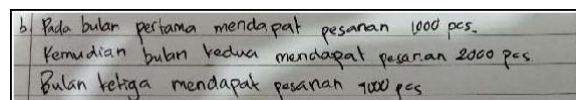 b) Pada bulan pertama mendapat pesanan 1000 pcs.
Kemudian bulan kedua mendapat pesanan 2000 pcs.
Bulan ketiga mendapat pesanan 4000 pcs